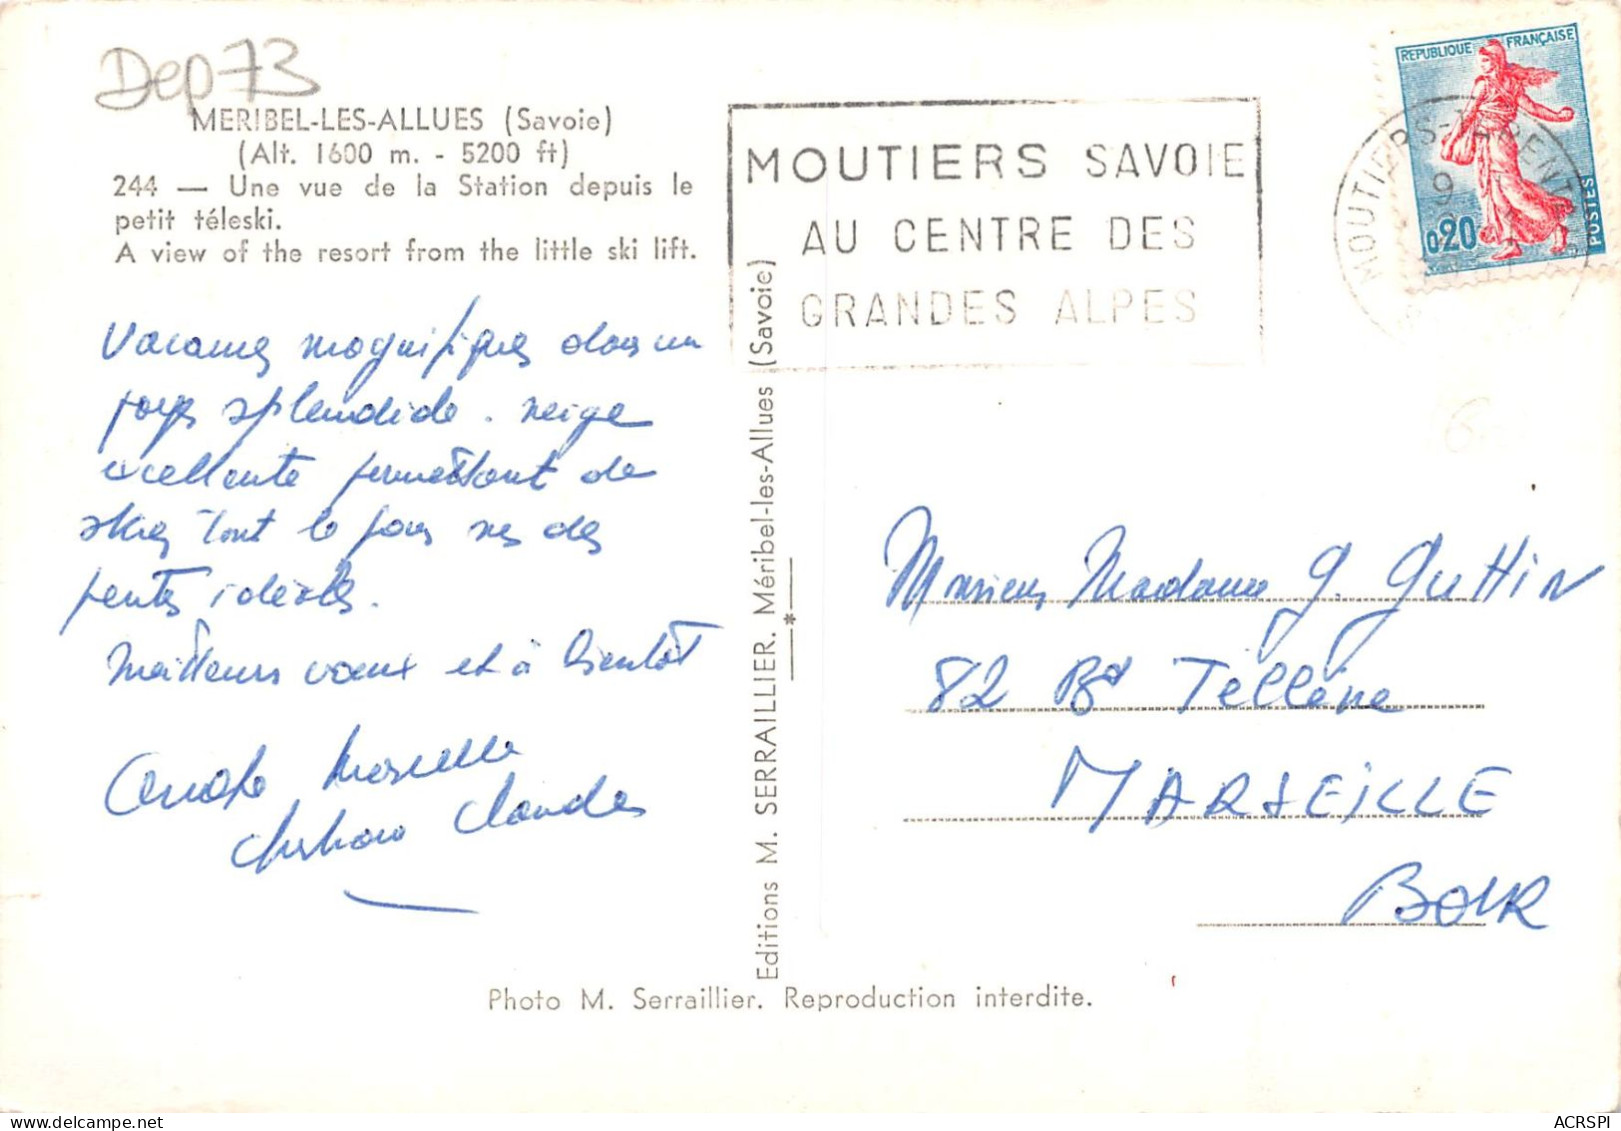 Dep 73
MERIBEL-LES-ALLUES (Savoie)
(Alt. 1600 m. - 5200 ft)
244 — Une vue de la Station depuis le
petit téleski.
A view of the resort from the little ski lift.
Vacances magnifiques dans un
pays splendide. neige
excellente permettant de
skier tout le jour sur des
pentes idéales.
Meilleurs voeux et à bientôt
Marcelle
Christian Claudes
Editions M. SERRAILLIER. Méribel-les-Allues (Savoie)
Photo M. Serraillier. Reproduction interdite.
MOUTIERS SAVOIE
AU CENTRE DES
GRANDES ALPES
REPUBLIQUE FRANÇAISE
0,20
POSTES
MOUTIERS-TARENT
9
Monsieur Madame G. Guttin
82 Bd Tellène
MARSEILLE
BOUR
ACRSPI